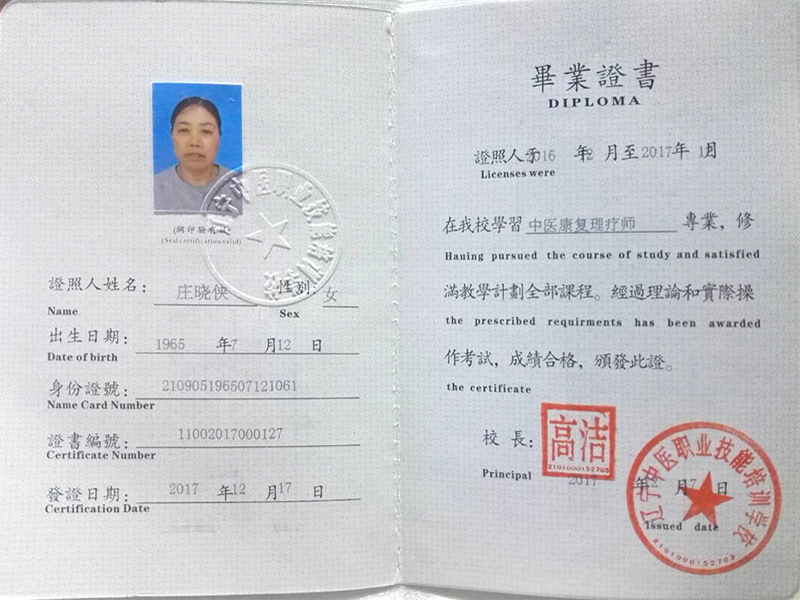 (鋼印驗有效)
(Seal certification valid)
證照人姓名： 庄晓侠 性别： 女
Name Sex
出生日期： 1965 年7 月12 日
Date of birth
身份證號： 210905196507121061
Name Card Number
證書編號： 11002017000127
Certificate Number
發證日期： 2017 年12 月17 日
Certification Date
畢業證書
DIPLOMA
證照人于2016 年2 月至2017年 1月
Licenses were
在我校學習 中医康复理疗师 專業，修
Hauing pursued the course of study and satisfied
滿教學計劃全部課程。經過理論和實際操
the prescribed requirments has been awarded
作考試，成績合格，頒發此證。
the certificate
校 長： 高洁
2101000152705
Principal 2017 年 月 7 日
Issued date
辽宁中医职业技能培训学校
2101000152703